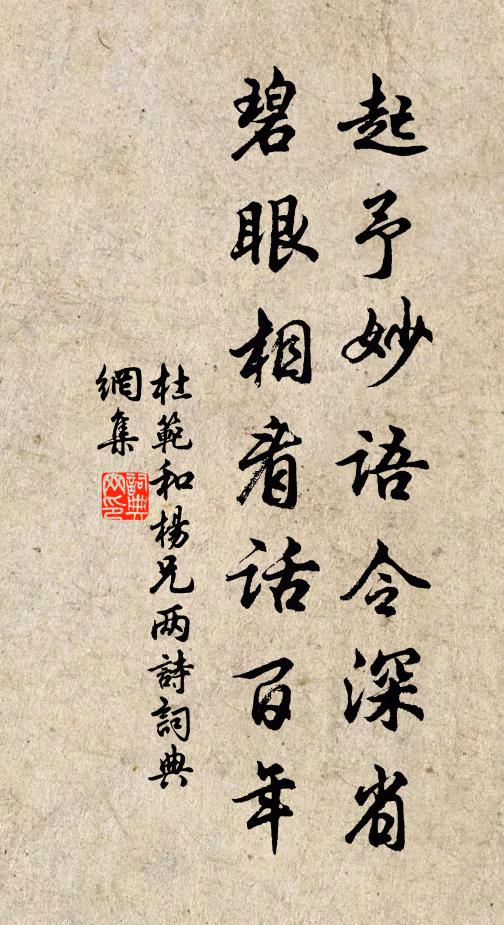 起予妙语令深省
碧眼相看话百年
杜範和楊兄两詩詞典
網集
詞典
网印